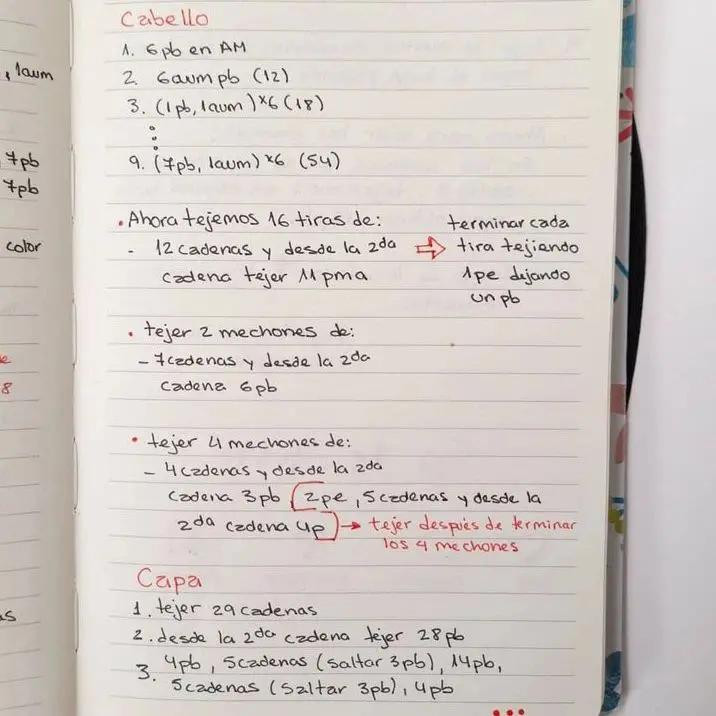 , 1aum
7pb
7pb
color
8
Cabello
1. 6pb en AM
2. 6aumpb (12)
3. (1pb, 1aum)×6 (18)
9. (7pb, 1aum)×6 (54)
. Ahora tejemos 16 tiras de:
- 12 cadenas y desde la 2da
cadena tejer 11 pma
⇨ terminar cada
tira tejiendo
1pe dejando
un pb
. tejer 2 mechones de:
- 7cadenas y desde la 2da
cadena 6pb
• tejer 4 mechones de:
- 4 cadenas y desde la 2da
cadena 3pb (2pe, 5 cadenas y desde la
2da cadena 4p) → tejer después de terminar
los 4 mechones
Capa
1. tejer 29 cadenas
2. desde la 2da cadena tejer 28pb
3. 4pb, 5cadenas (saltar 3pb), 14pb,
5cadenas (saltar 3pb), 4pb